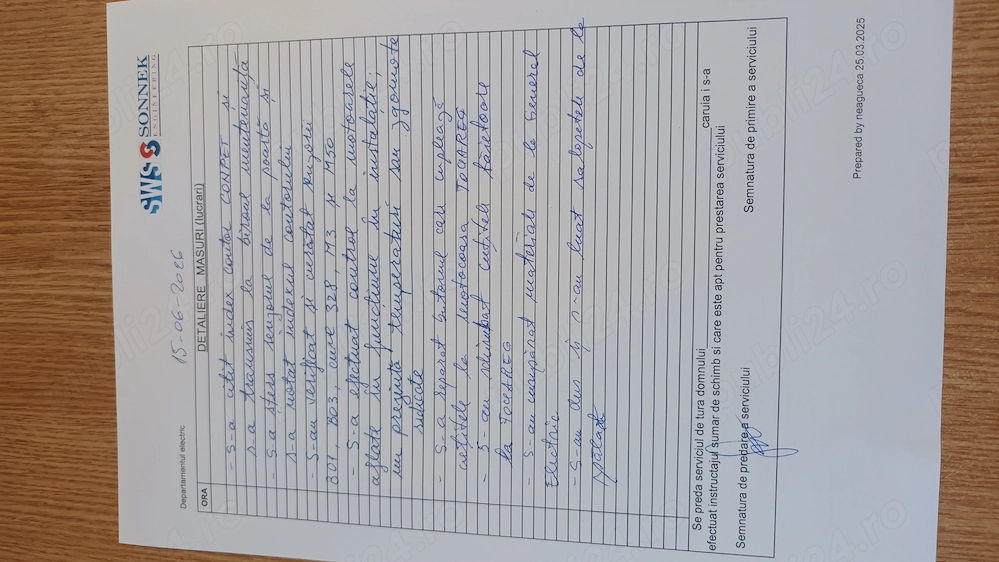 SWS SONNEK
ENGINEERING
Departamentul electric
15-06-2026
ORA DETALIERE MASURI (lucrari)
- S-a citit index contor CONPET și
s-a transmis la biroul mentenanță
- S-a șters senzorul de la poartă și
s-a notat indexul contorului
- S-au verificat si curatat
301 B03, cuve 328, M3 si M50
- S-a efectuat control la motoarele
aflate in functiune in instalatie;
nu prezintă temperaturi sau zgomote
ridicate
- S-a reparat butonul care cuplează
cuțitele la motocoasa TOCAREG
- S-au schimbat cuțitele tăietoare
la TOCAREG
- S-au cumpărat materiale de la General
Electric
- S-au dus și s-au luat salopetele de la
spălat
Se preda serviciul de tura domnului caruia i s-a
efectuat instructajul sumar de schimb si care este apt pentru prestarea serviciului
Semnatura de predare a serviciului Semnatura de primire a serviciului
Prepared by neagueca 25.03.2025
publi24.ro